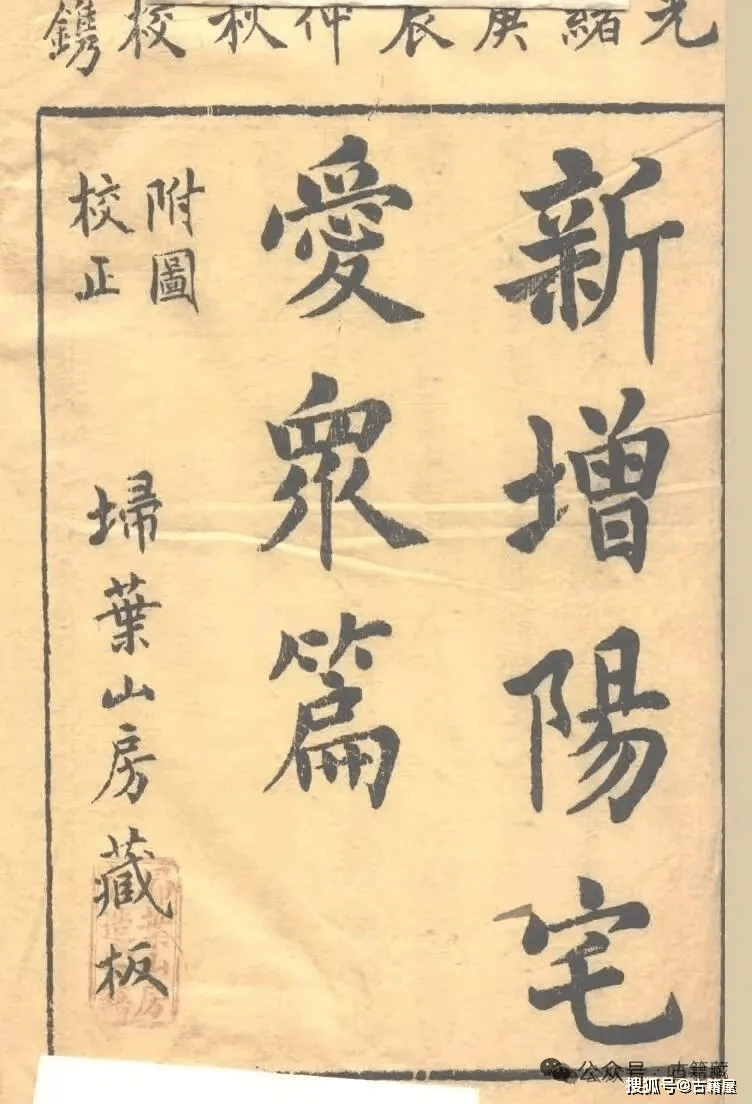 光緒庚辰仲秋校鐫
新增陽宅
愛眾篇
附圖
校正
埽葉山房藏板
公众号·古籍藏
搜狐号@古籍屋